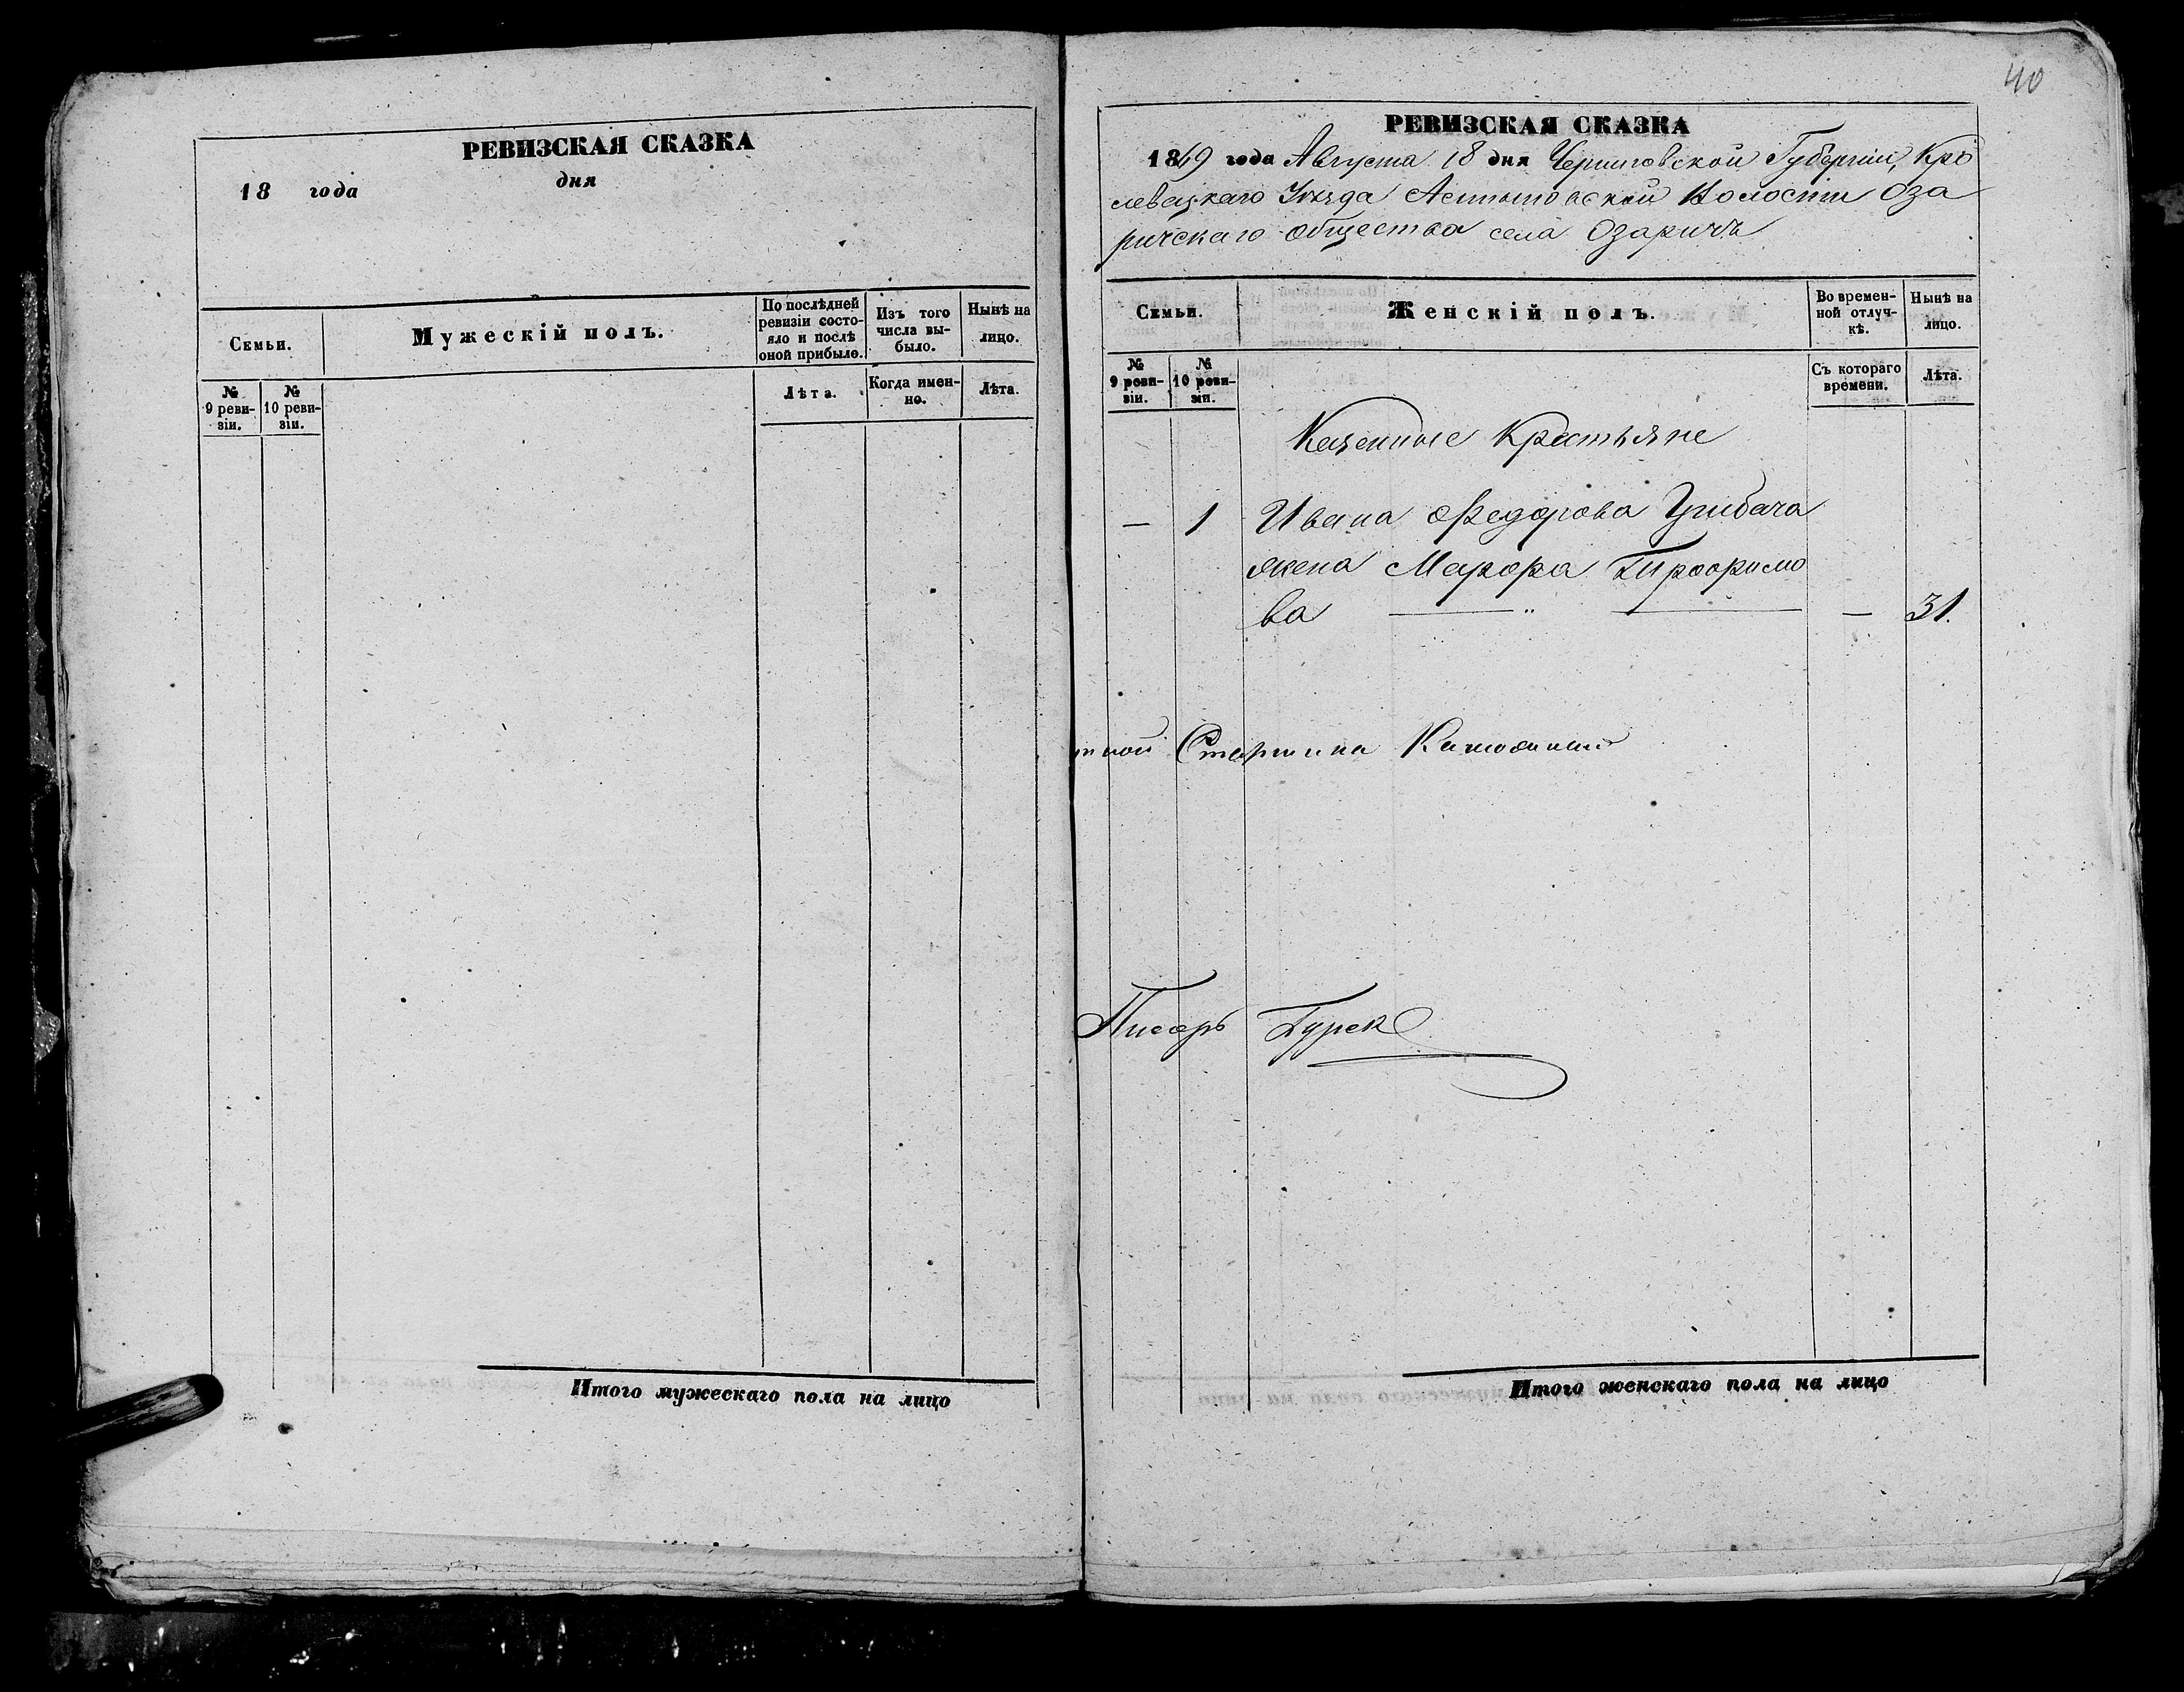 РЕВИЗСКАЯ СКАЗКА
18 года дня
Семьи.
Мужескій полъ.
По послѣдней ревизіи состояло и послѣ оной прибыло.
Изъ того числа выбыло.
Нынѣ на лицо.
№ 9 ревизіи.
№ 10 ревизіи.
Лѣта.
Когда именно.
Лѣта.
Итого мужескаго пола на лицо
40
РЕВИЗСКАЯ СКАЗКА
1869 года Августа 18 дня Черниговской Губерніи, Кро
левецкаго Уѣзда Волости Оза
ричскаго общества села Озаричъ
Семьи.
Женскій полъ.
Во временной отлучкѣ.
Нынѣ на лицо.
№ 9 ревизіи.
№ 10 ревизіи.
Съ котораго времени.
Лѣта.
Казенные Крестьяне
— 1 Ивана Федорова Грибача
жена Марфа Трофимо
ва — " — — 31.
тной Старшина
Писарь
Итого женскаго пола на лицо